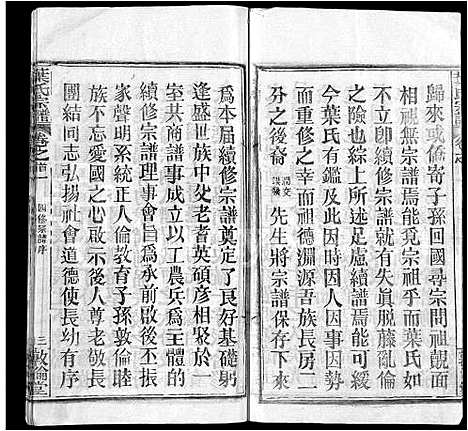 歸來或僑寄子孫回國尋宗問祖覿面
相視無宗譜焉能覓宗祖乎而葉氏尔
不立卽續修宗譜就有失真脫藤亂倫
之險也綜上所述足慮續譜焉能可緩
今葉氏有鑑及此因時因人因事因勢
而重修之幸而祖德淵源吾族長房二
分之後裔
先生將宗譜保存下
來
爲本届續修宗譜奠定了良好基礎躬
逢盛世族中父老者英碩彦相聚于一
室共商譜事成立以工農兵爲主體的
續修宗譜理事會旨爲承前啟後不振
家聲明系統正人倫教育子孫敦倫睦
族不忘愛國之心啟示後人葉姓宗親
團結同志弘揚社會道德使長幼有序
葉氏宗譜
卷之首
四修宗譜序
三